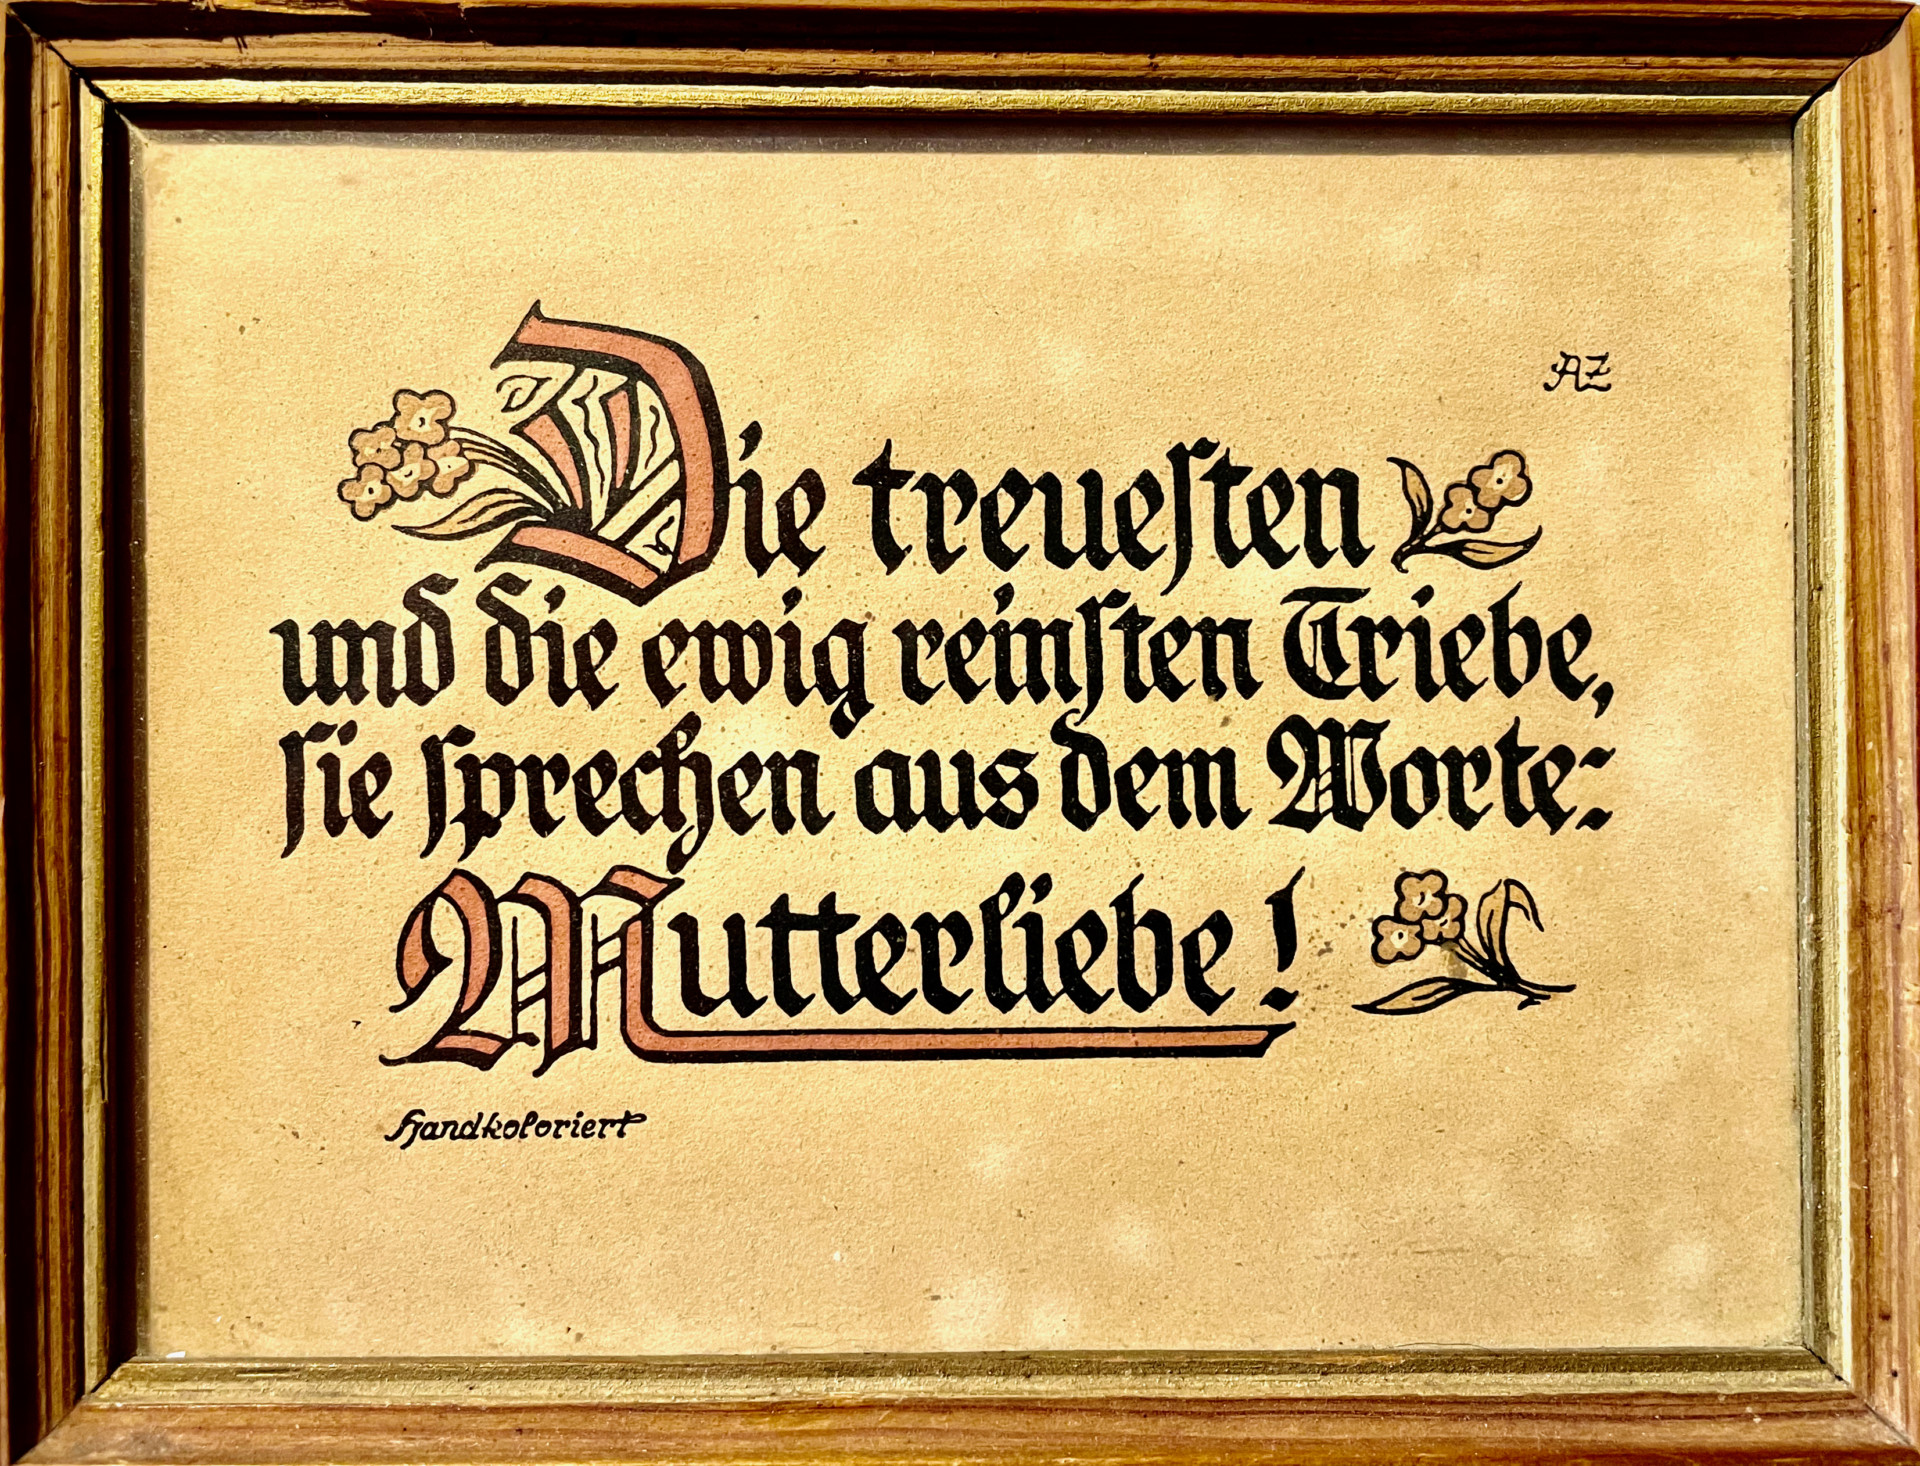 AZ
Die treuesten
und die ewig reinsten Triebe,
sie sprechen aus dem Worte:
Mutterliebe!
Handkoloriert